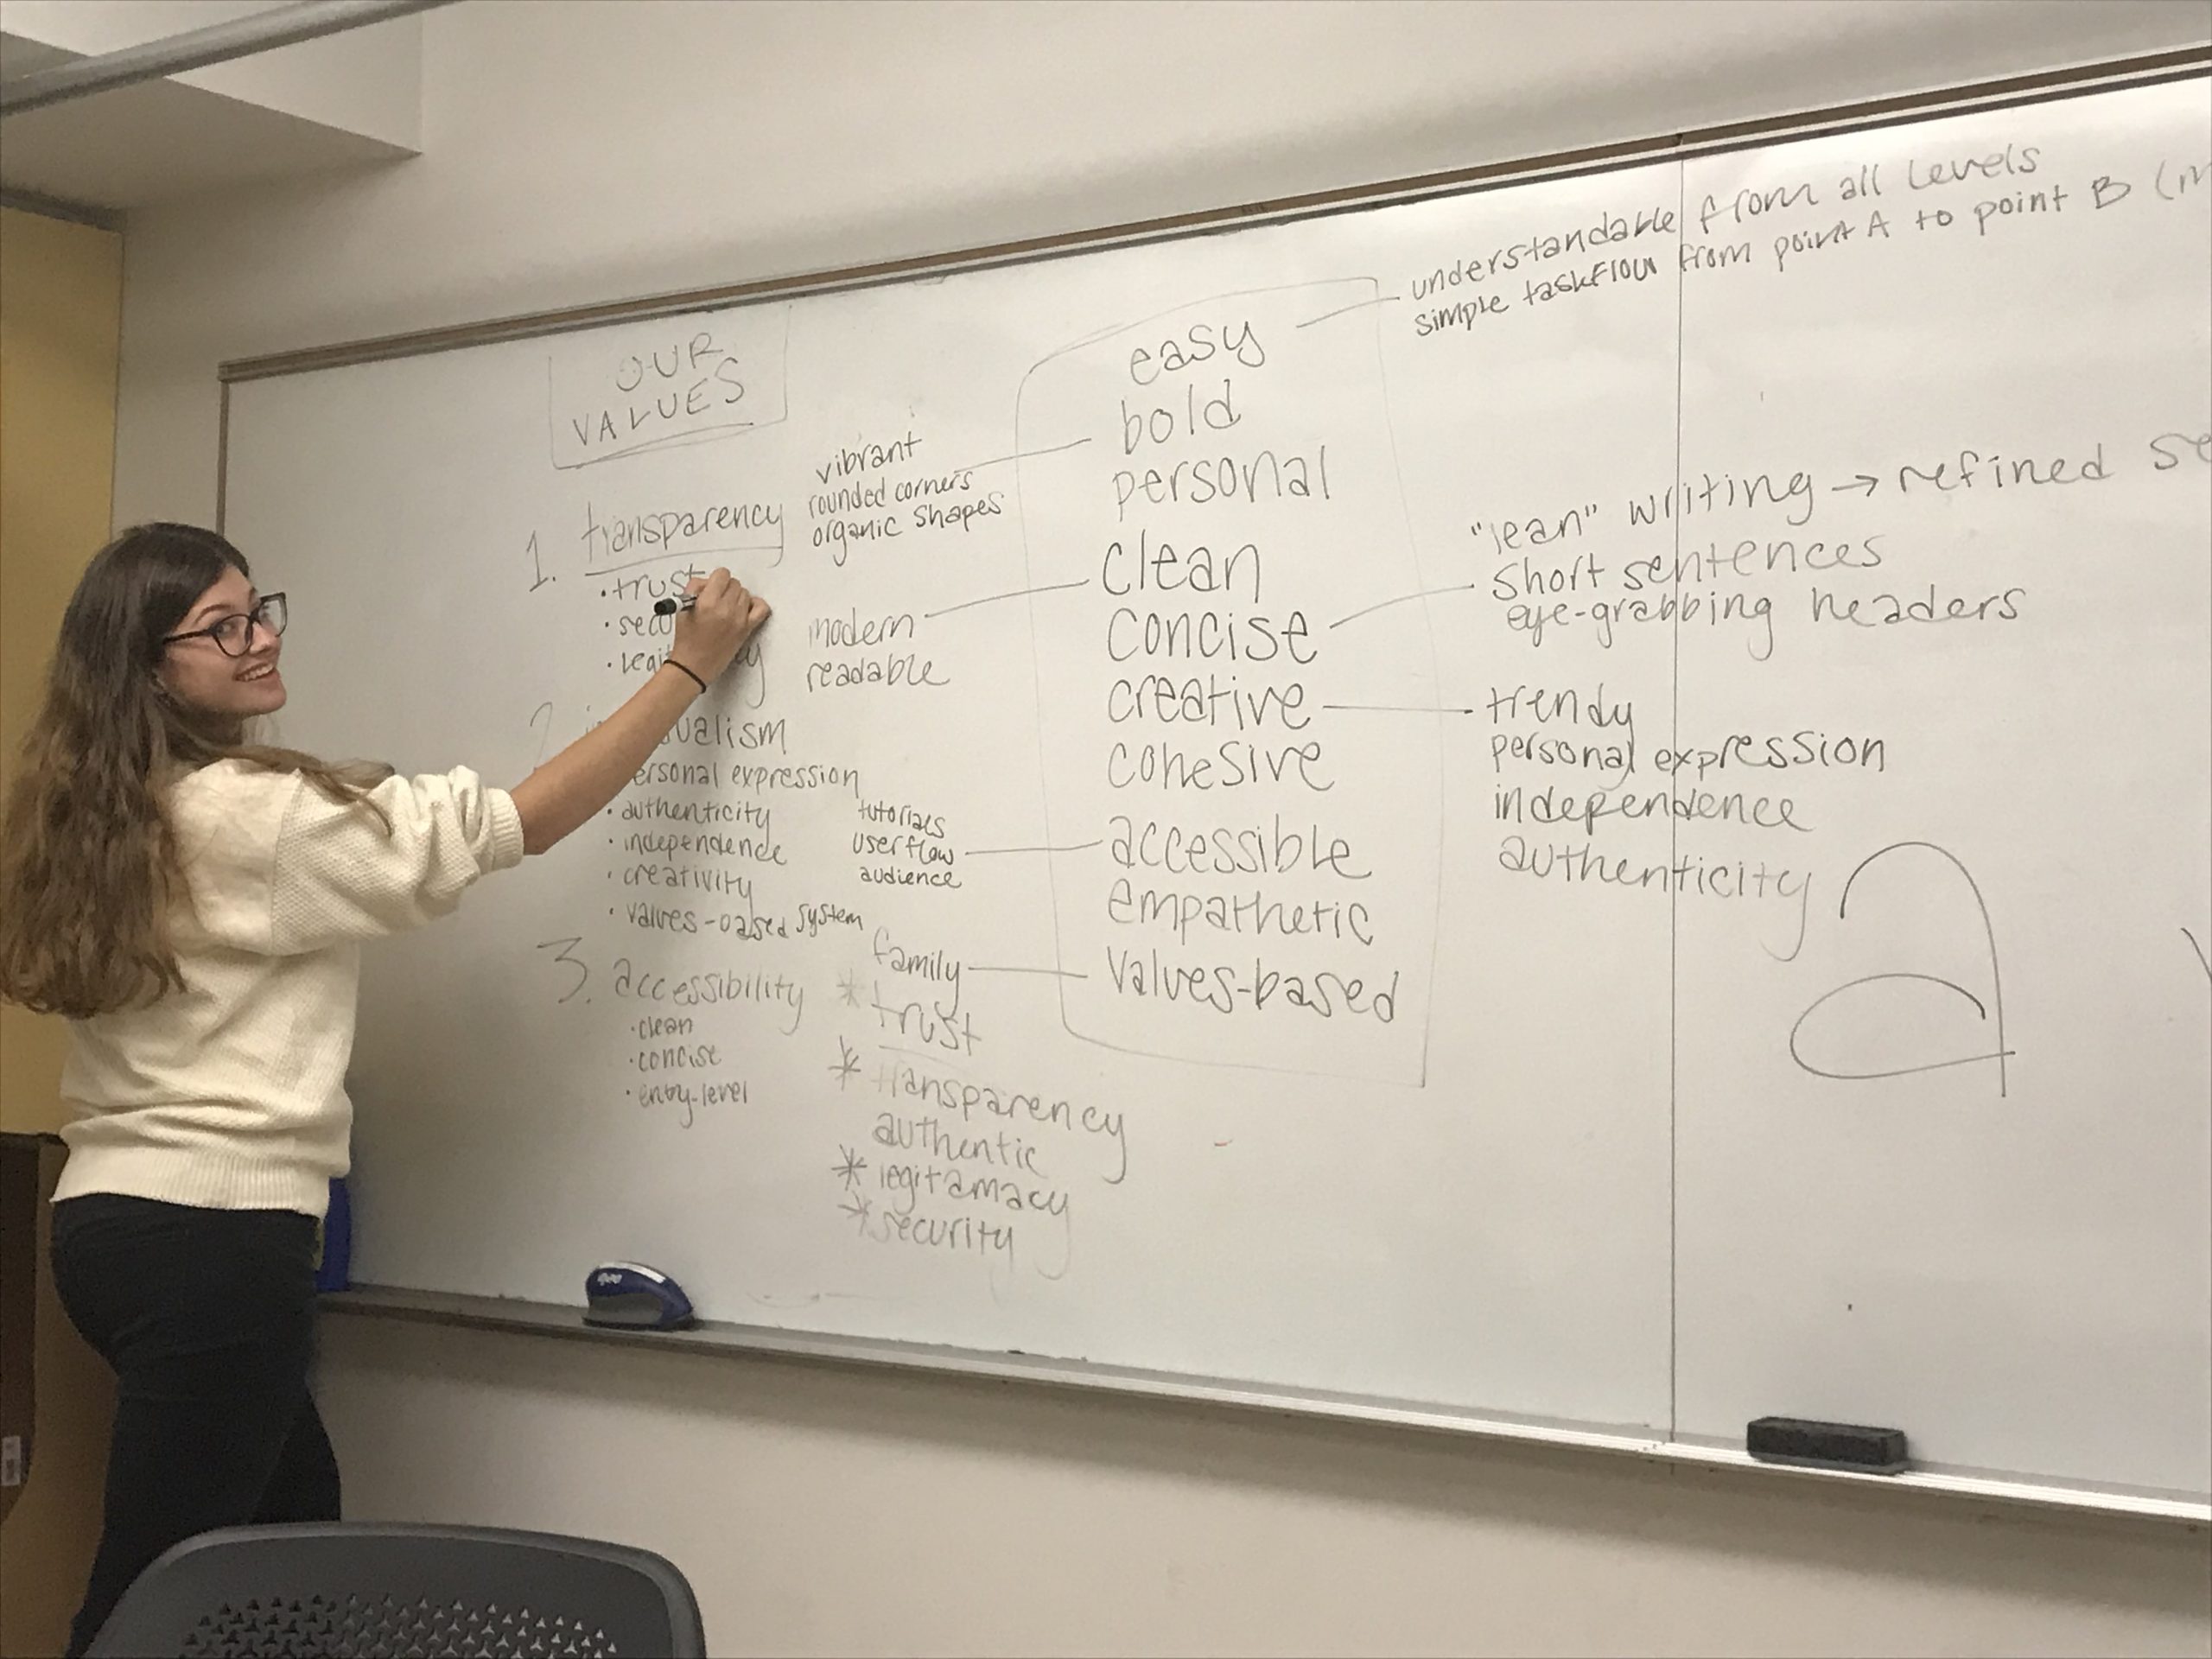 OUR
VALUES
1. transparency
• trust
2
personal expression
• authenticity
• independence
• creativity
• values-based system
3. accessibility
• clean
• concise
• entry-level
vibrant
rounded corners
organic shapes
modern
readable
tutorials
userflow
audience
family
* trust
* transparency
authentic
* legitamacy
* security
easy
bold
personal
clean
concise
creative
cohesive
accessible
empathetic
values-based
understandable from all levels
simple taskflow from point A to point B
"lean" writing → refined
short sentences
eye-grabbing headers
trendy
personal expression
independence
authenticity
a
expo